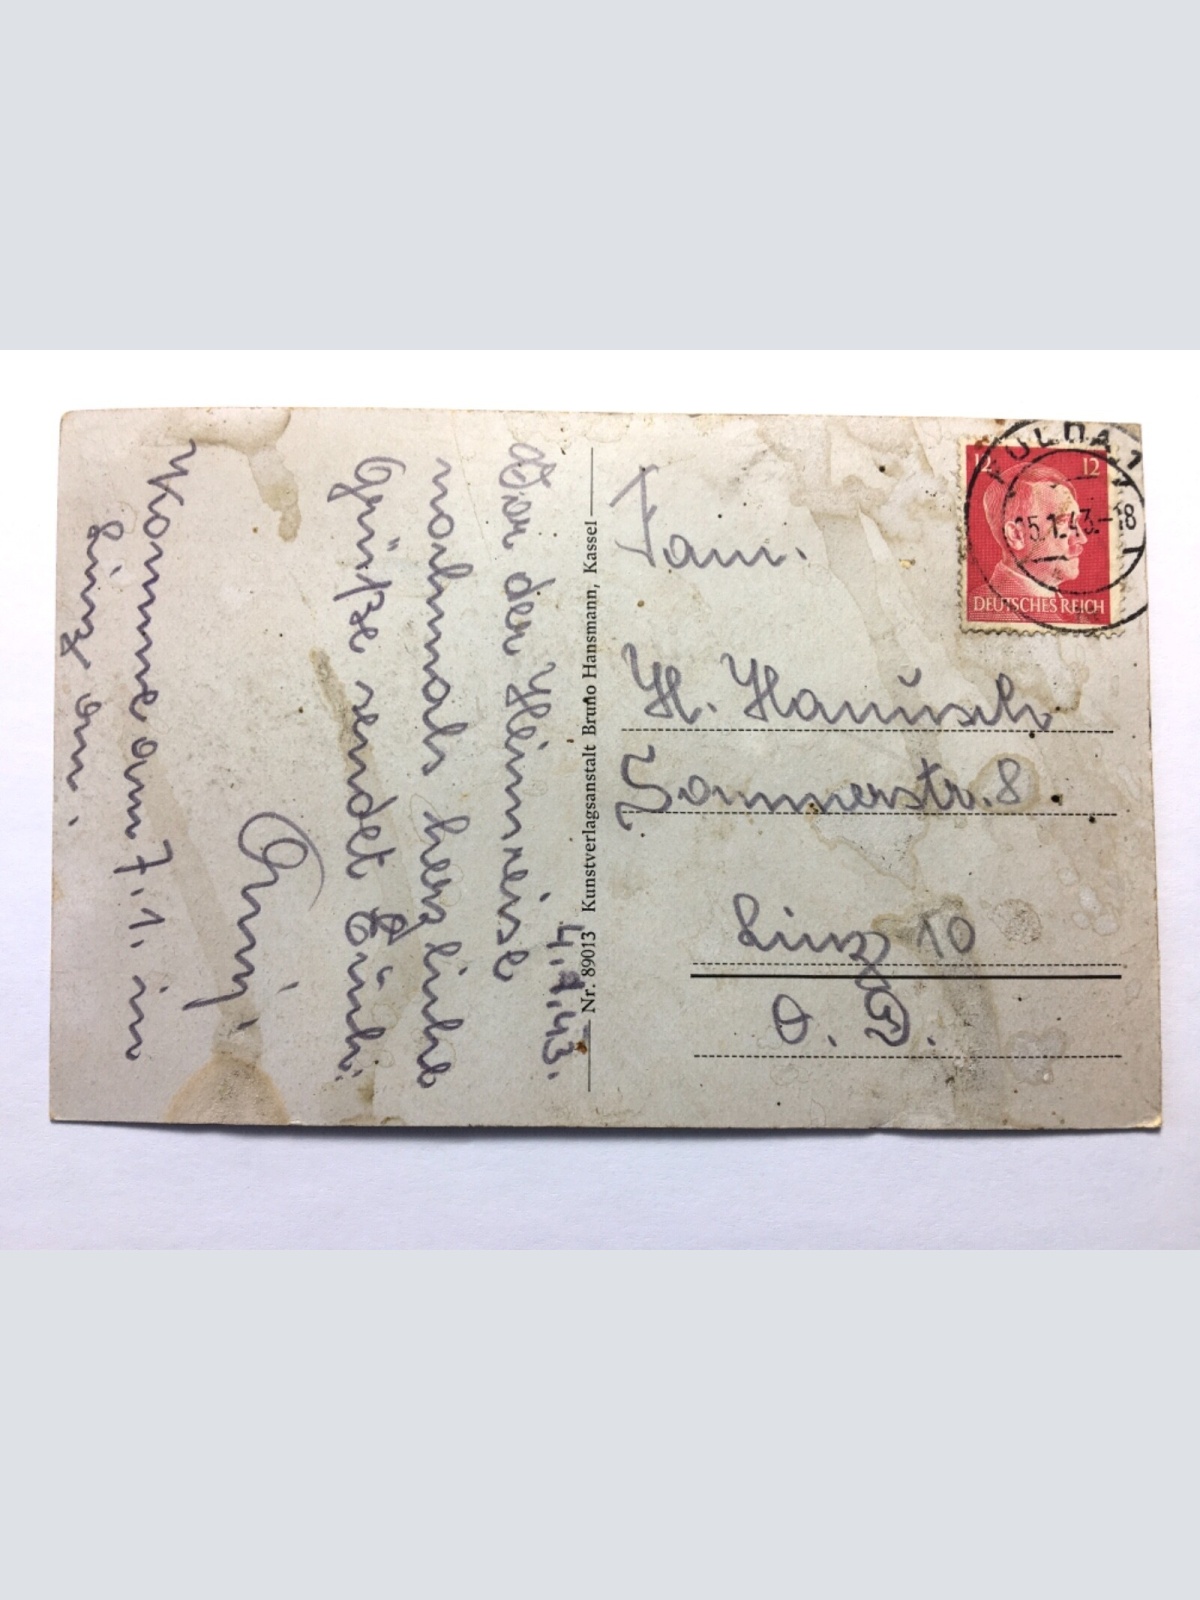 4.1.43.
Von der Heimreise
nochmals herzliche
Grüße sendet Euch
Komme am 7.1. in
Linz an.
Nr. 89013 Kunstverlagsanstalt Bruno Hansmann, Kassel
FULDA 1
15.1.43.-18
12 12
DEUTSCHES REICH
Fam.
H. Hanusch
Sommerstr. 8
Linz 10
O. D.